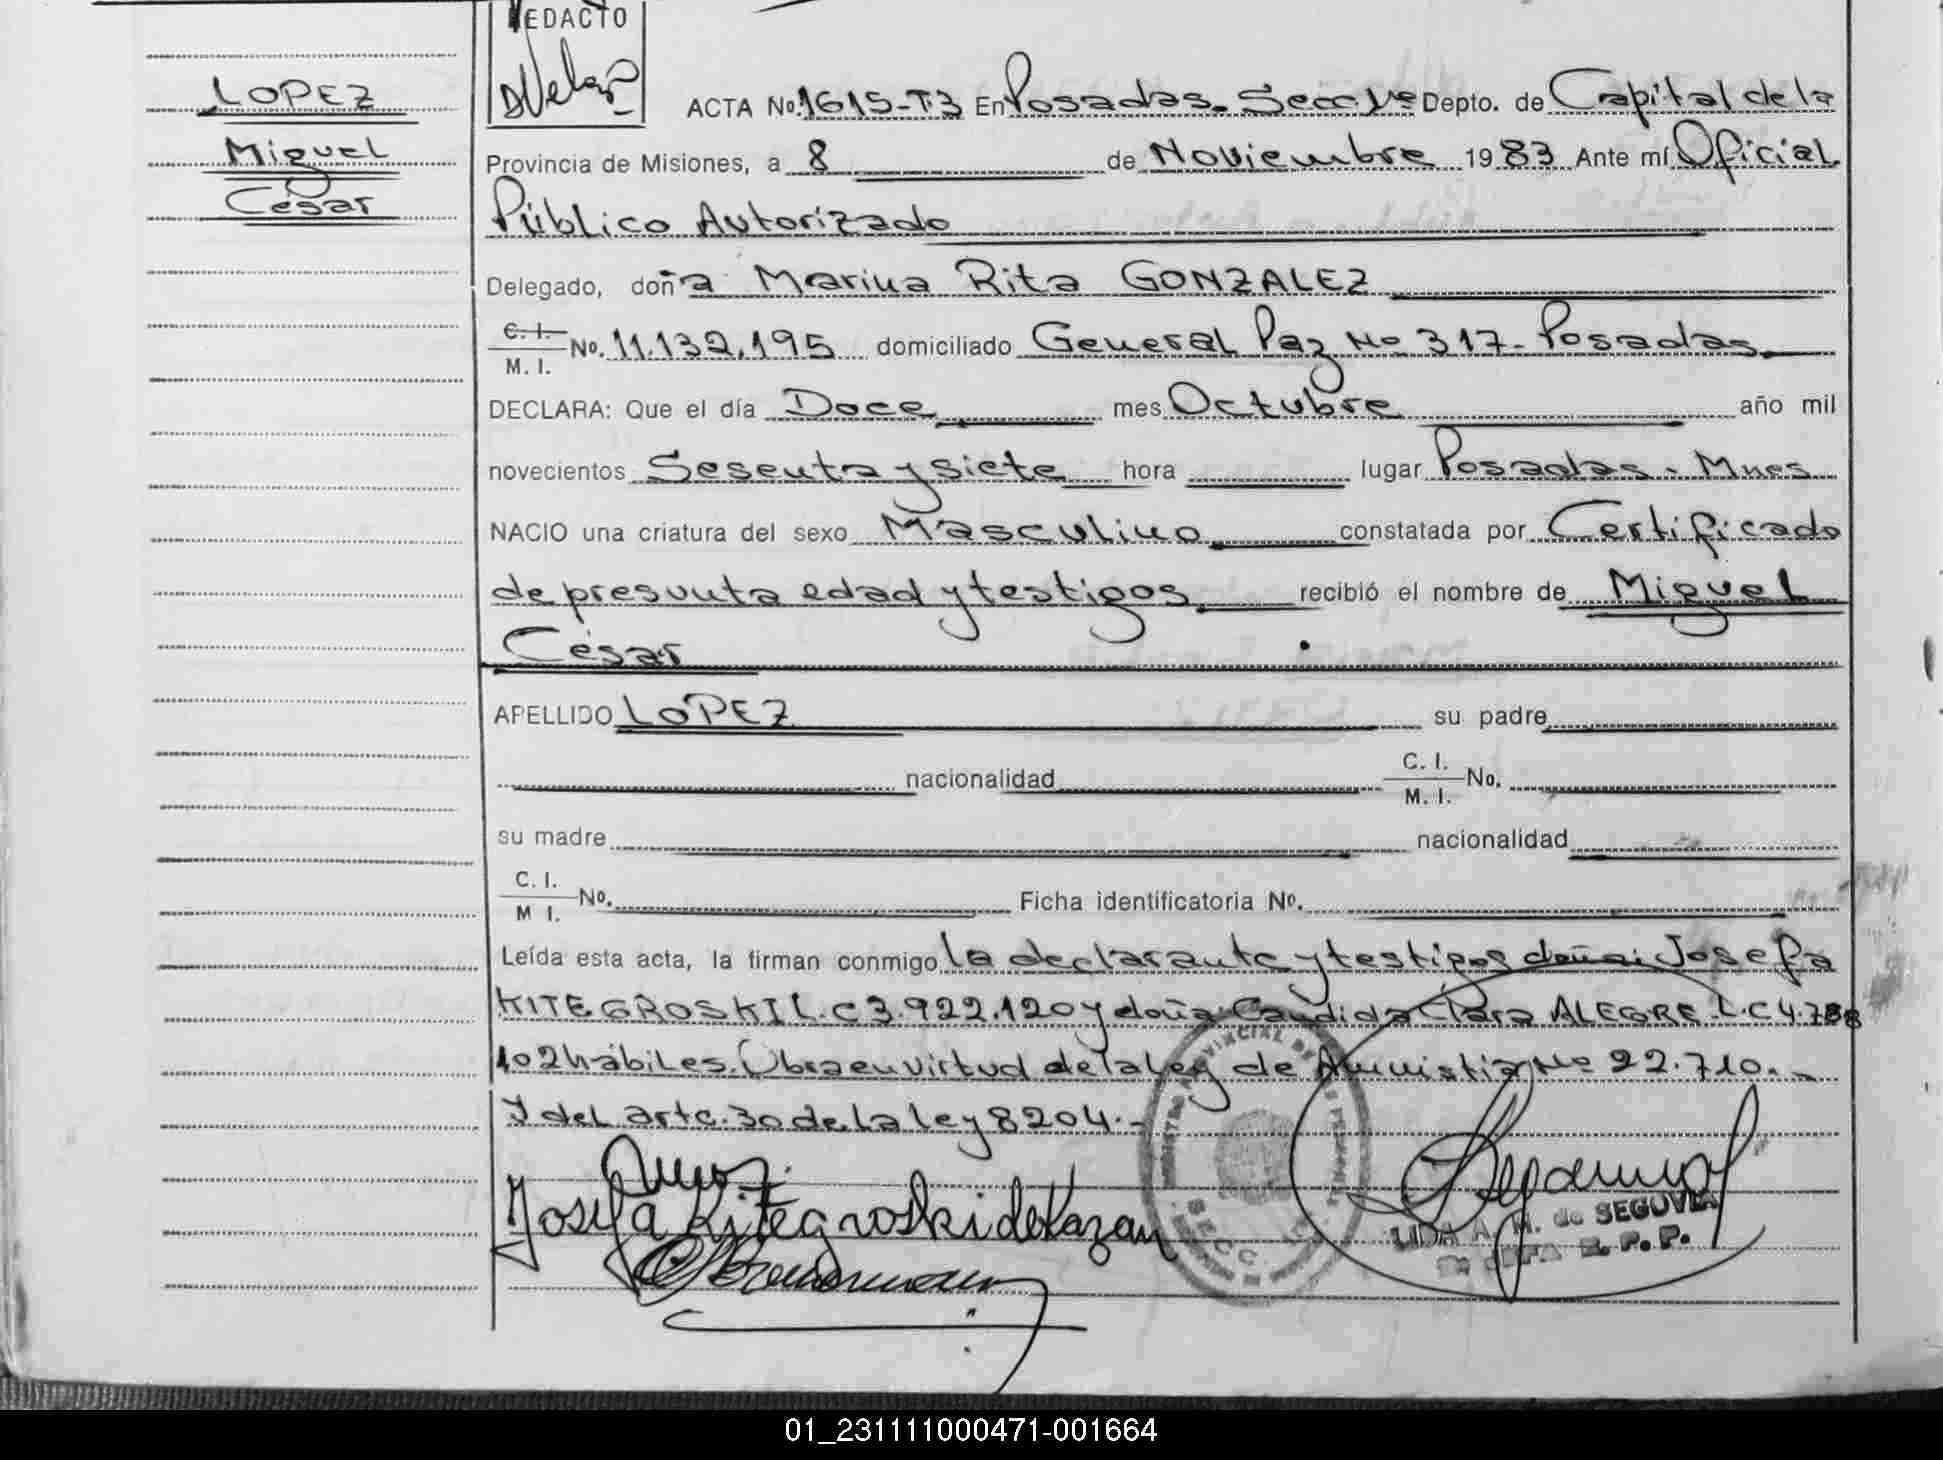 LOPEZ
Miguel
César
REDACTO
ACTA No. 1615-T.3 En Posadas. Secc. 1ª Depto. de Capital de la
Provincia de Misiones, a 8 de Noviembre 1983 Ante mí Oficial
Público Autorizado
Delegado, doña Marina Rita GONZALEZ
C. I.
M. I. No. 11.132.195 domiciliado General Paz Nº 317- Posadas.
DECLARA: Que el día Doce mes Octubre año mil
novecientos Sesenta y siete hora lugar Posadas - Mnes
NACIO una criatura del sexo Masculino constatada por Certificado
de presunta edad y testigos recibió el nombre de Miguel
César
APELLIDO LOPEZ su padre
nacionalidad C. I.
M. I. No.
su madre nacionalidad
C. I.
M I. No. Ficha identificatoria No.
Leída esta acta, la firman conmigo la declarante y testigos doña: Josefa
KITEGROSKI L.C 3.922.120 y doña: Candida Clara ALEGRE L.C 4.788
102 hábiles. Obra en virtud de la ley de Amnistia Nº 22.710.-
Y del artc. 30 de la ley 8204.-
Josefa Kitegroski de Kazan
LIDA A. M. de SEGOVIA
SECC.
01_231111000471-001664